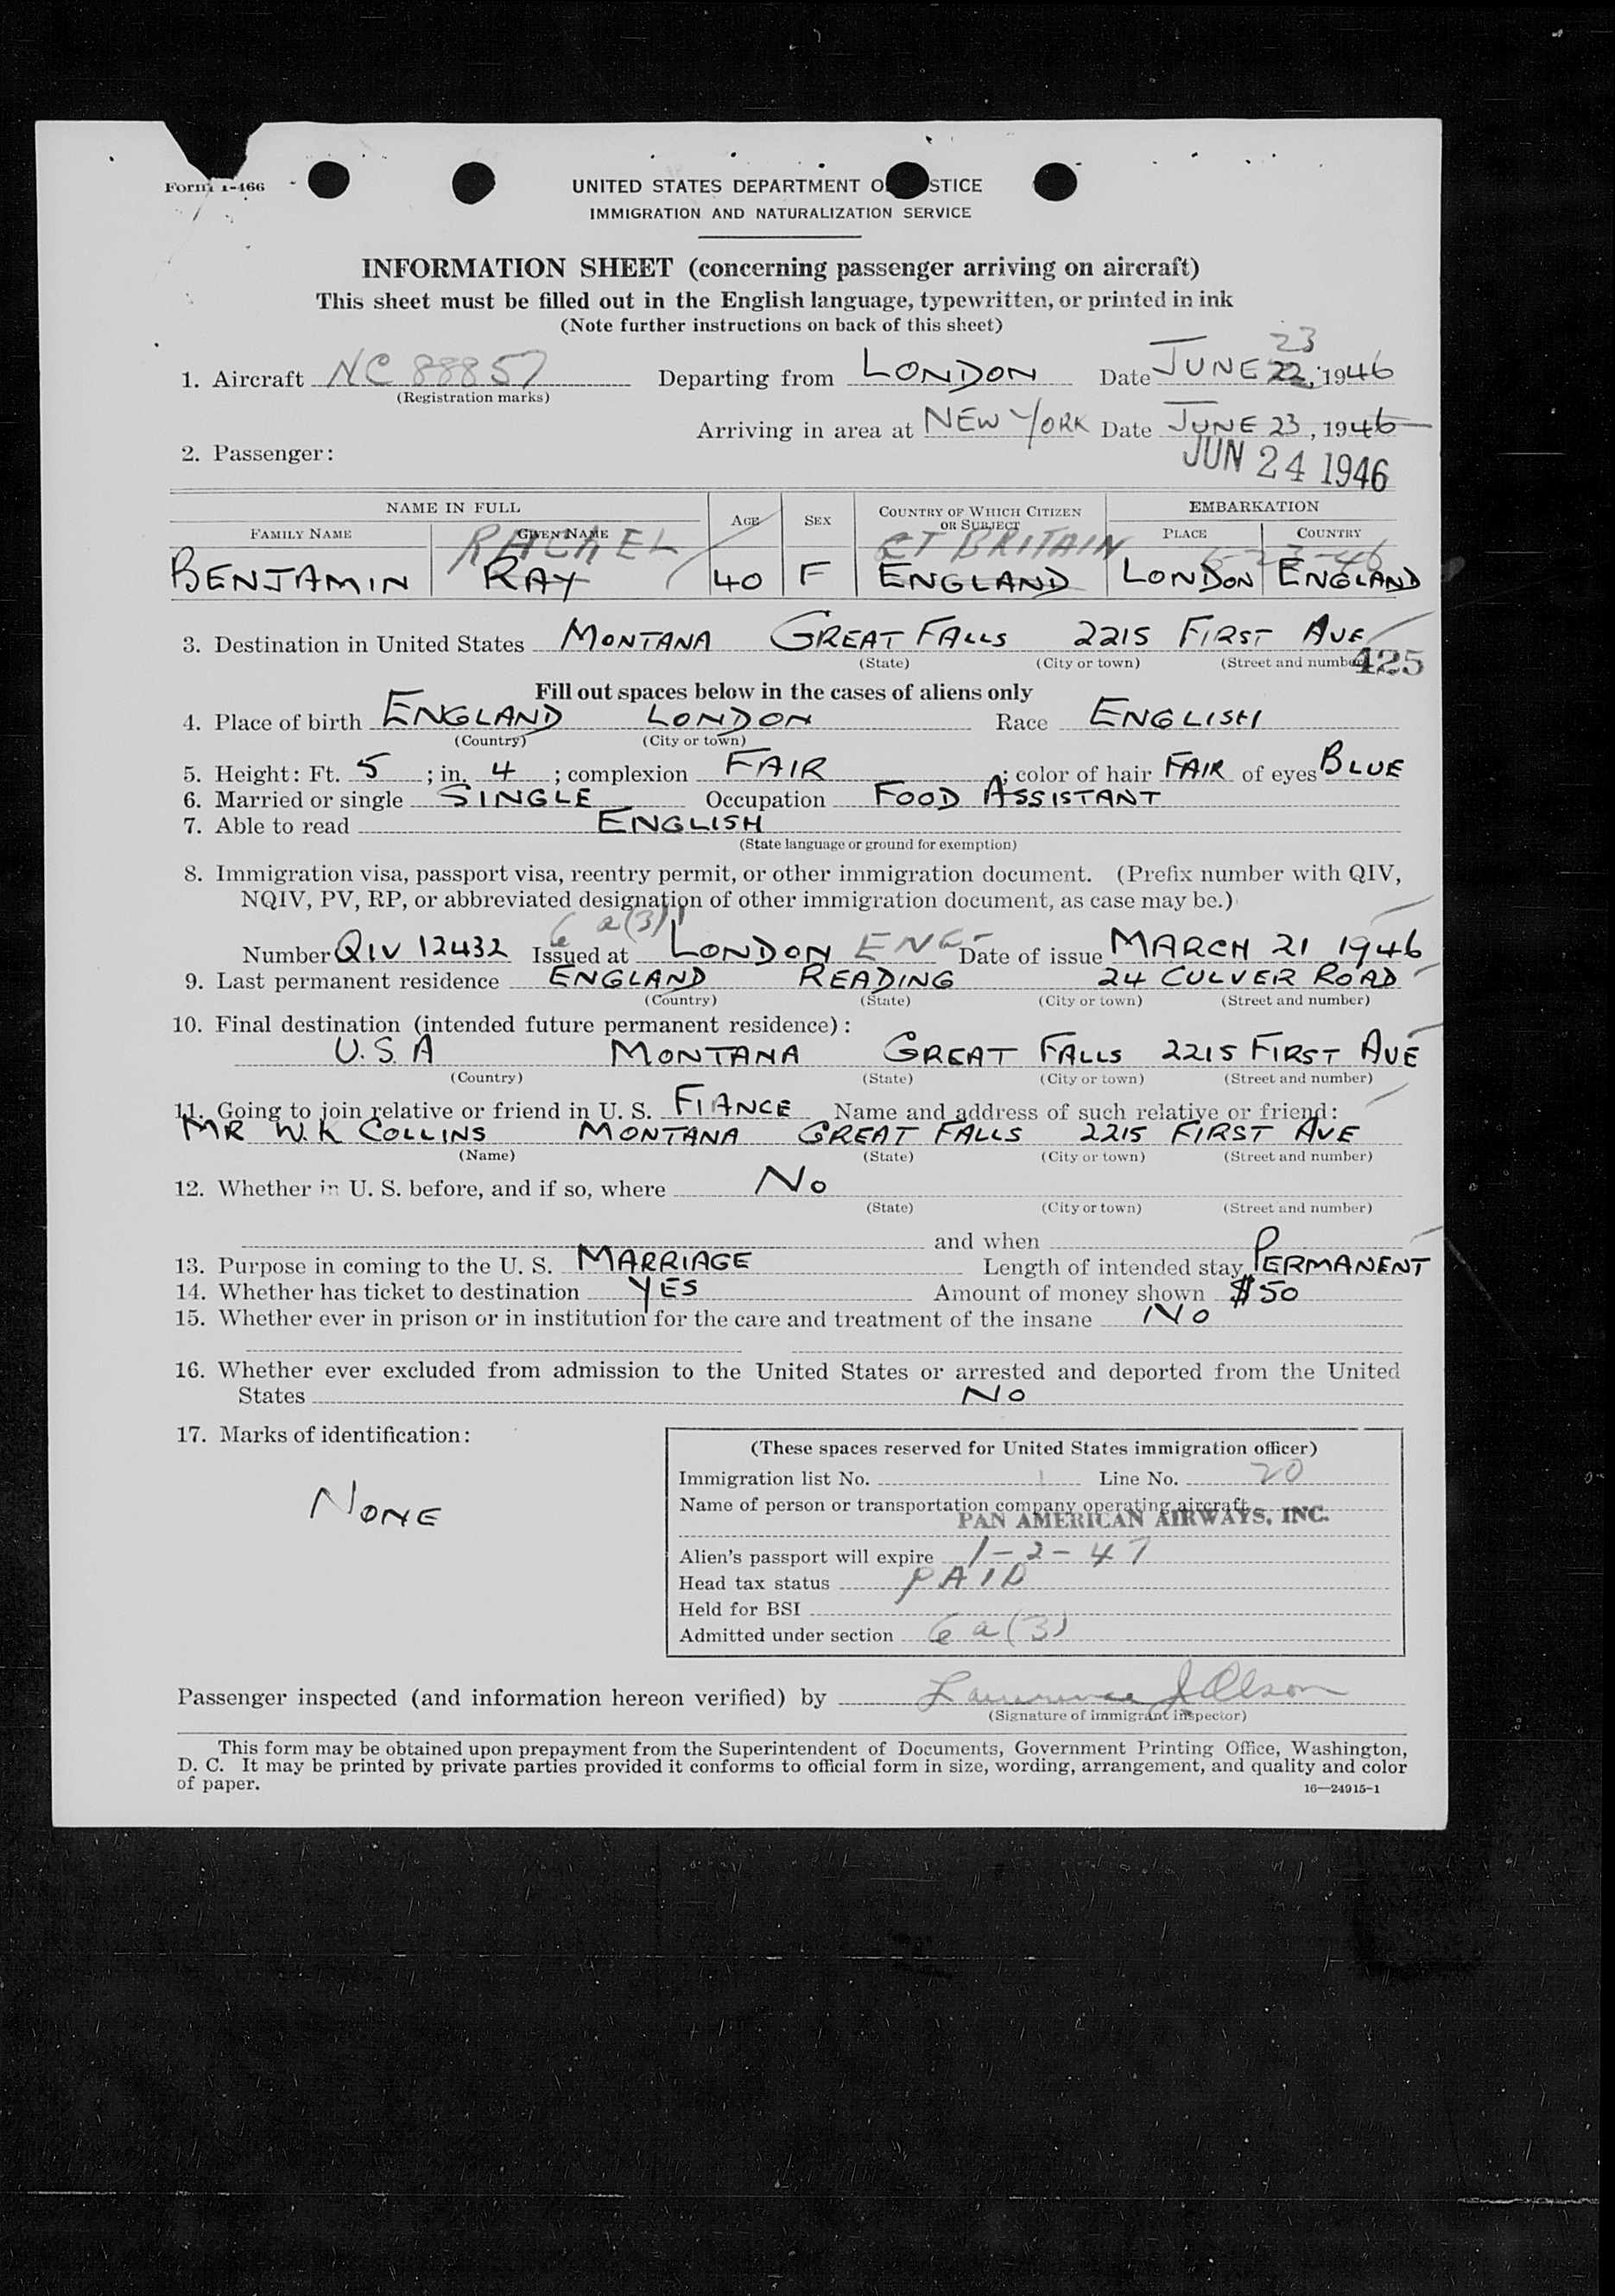 Form I-466
UNITED STATES DEPARTMENT O STICE
IMMIGRATION AND NATURALIZATION SERVICE
INFORMATION SHEET (concerning passenger arriving on aircraft)
This sheet must be filled out in the English language, typewritten, or printed in ink
(Note further instructions on back of this sheet)
23
1. Aircraft NC 88857 Departing from LONDON Date JUNE 22, 1946
(Registration marks)
Arriving in area at NEW YORK Date JUNE 23, 1946
2. Passenger:
JUN 24 1946
NAME IN FULL AGE SEX COUNTRY OF WHICH CITIZEN OR SUBJECT EMBARKATION
FAMILY NAME GIVEN NAME PLACE COUNTRY
RACHEL GT BRITAIN 6-23-46
BENJAMIN RAY 40 F ENGLAND LONDON ENGLAND
3. Destination in United States MONTANA GREAT FALLS 2215 FIRST AVE
(State) (City or town) (Street and number)
425
Fill out spaces below in the cases of aliens only
4. Place of birth ENGLAND LONDON Race ENGLISH
(Country) (City or town)
5. Height: Ft. 5 ; in. 4 ; complexion FAIR ; color of hair FAIR of eyes BLUE
6. Married or single SINGLE Occupation FOOD ASSISTANT
7. Able to read ENGLISH
(State language or ground for exemption)
8. Immigration visa, passport visa, reentry permit, or other immigration document. (Prefix number with QIV,
NQIV, PV, RP, or abbreviated designation of other immigration document, as case may be.)
6 a(3)
Number QIV 12432 Issued at LONDON ENG Date of issue MARCH 21 1946
9. Last permanent residence ENGLAND READING 24 CULVER ROAD
(Country) (State) (City or town) (Street and number)
10. Final destination (intended future permanent residence):
U.S.A MONTANA GREAT FALLS 2215 FIRST AVE
(Country) (State) (City or town) (Street and number)
11. Going to join relative or friend in U. S. FIANCE Name and address of such relative or friend:
MR W.K COLLINS MONTANA GREAT FALLS 2215 FIRST AVE
(Name) (State) (City or town) (Street and number)
12. Whether in U. S. before, and if so, where NO
(State) (City or town) (Street and number)
and when
13. Purpose in coming to the U. S. MARRIAGE Length of intended stay PERMANENT
14. Whether has ticket to destination YES Amount of money shown $50
15. Whether ever in prison or in institution for the care and treatment of the insane NO
16. Whether ever excluded from admission to the United States or arrested and deported from the United
States NO
17. Marks of identification:
NONE
(These spaces reserved for United States immigration officer)
Immigration list No. 1 Line No. 20
Name of person or transportation company operating aircraft
PAN AMERICAN AIRWAYS, INC.
Alien's passport will expire 1-2-47
Head tax status PAID
Held for BSI
Admitted under section 6 a(3)
Passenger inspected (and information hereon verified) by Lawrence J Olson
(Signature of immigrant inspector)
This form may be obtained upon prepayment from the Superintendent of Documents, Government Printing Office, Washington,
D. C. It may be printed by private parties provided it conforms to official form in size, wording, arrangement, and quality and color
of paper.
16—24915-1